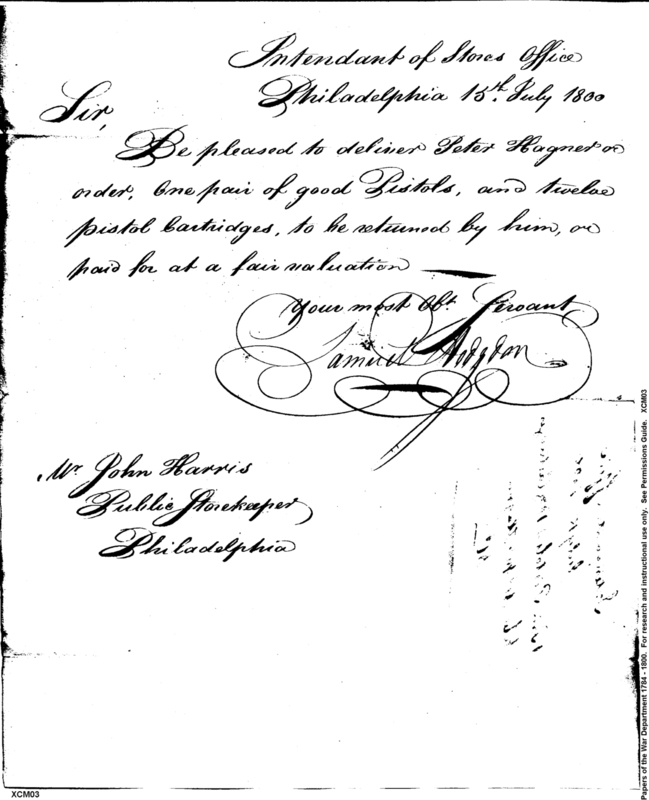 Intendant of Stores Office
Philadelphia 15th. July 1800
Sir,
Be pleased to deliver Peter Hagner or
order, One pair of good Pistols, and twelve
pistol Cartridges, to be returned by him, or
paid for at a fair valuation
Your most Obt. Servant
Samuel Hodgdon
Mr. John Harris
Public Storekeeper
Philadelphia
Papers of the War Department 1784 - 1800. For research and instructional use only. See Permissions Guide. XCM03
XCM03